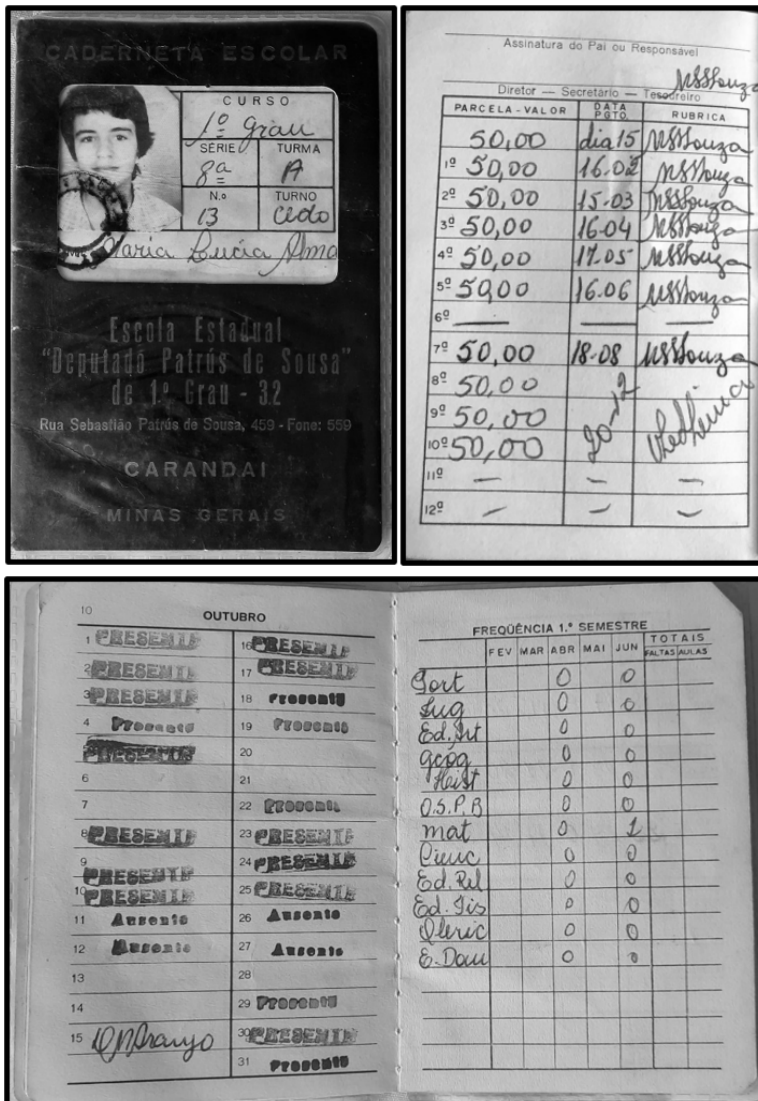 CADERNETA ESCOLAR
CURSO
1º grau
SÉRIE TURMA
8ª A
N.o TURNO
13 Cedo
Maria Lucia Alma
Escola Estadual
"Deputado Patrús de Sousa"
de 1º Grau - 32
Rua Sebastião Patrús de Sousa, 459 - Fone: 559
CARANDAI
MINAS GERAIS
Assinatura do Pai ou Responsável
MSSouza
Diretor — Secretário — Tesoureiro
PARCELA - VALOR DATA PGTO. RUBRICA
50,00 dia 15 MSSouza
1º 50,00 16.02 MSSouza
2º 50,00 15-03 MSSouza
3º 50,00 16-04 MSSouza
4º 50,00 17.05 MSSouza
5º 50,00 16.06 MSSouza
6º — — —
7º 50,00 18-08 MSSouza
8º 50,00
9º 50,00 20-12
10º 50,00
11º — — —
12º — — —
10 OUTUBRO
1 PRESENTE 16 PRESENTE
2 PRESENTE 17 PRESENTE
3 PRESENTE 18 Presente
4 Presente 19 Presente
PRESENTE 20
6 21
7 22 Presente
8 PRESENTE 23 PRESENTE
9 PRESENTE 24 PRESENTE
10 PRESENTE 25 PRESENTE
11 Ausente 26 Ausente
12 Ausente 27 Ausente
13 28
14 29 Presente
15 30 PRESENTE
31 Presente
FREQÜÊNCIA 1.º SEMESTRE
FEV MAR ABR MAI JUN TOTAIS
FALTAS AULAS
Port 0 0
Lug 0 0
Ed. Art 0 0
geog 0 0
Hist 0 0
O.S.P.B 0 0
mat 0 1
Cienc 0 0
Ed. Rel 0 0
Ed. Fis 0 0
0 0
E. Dom 0 0